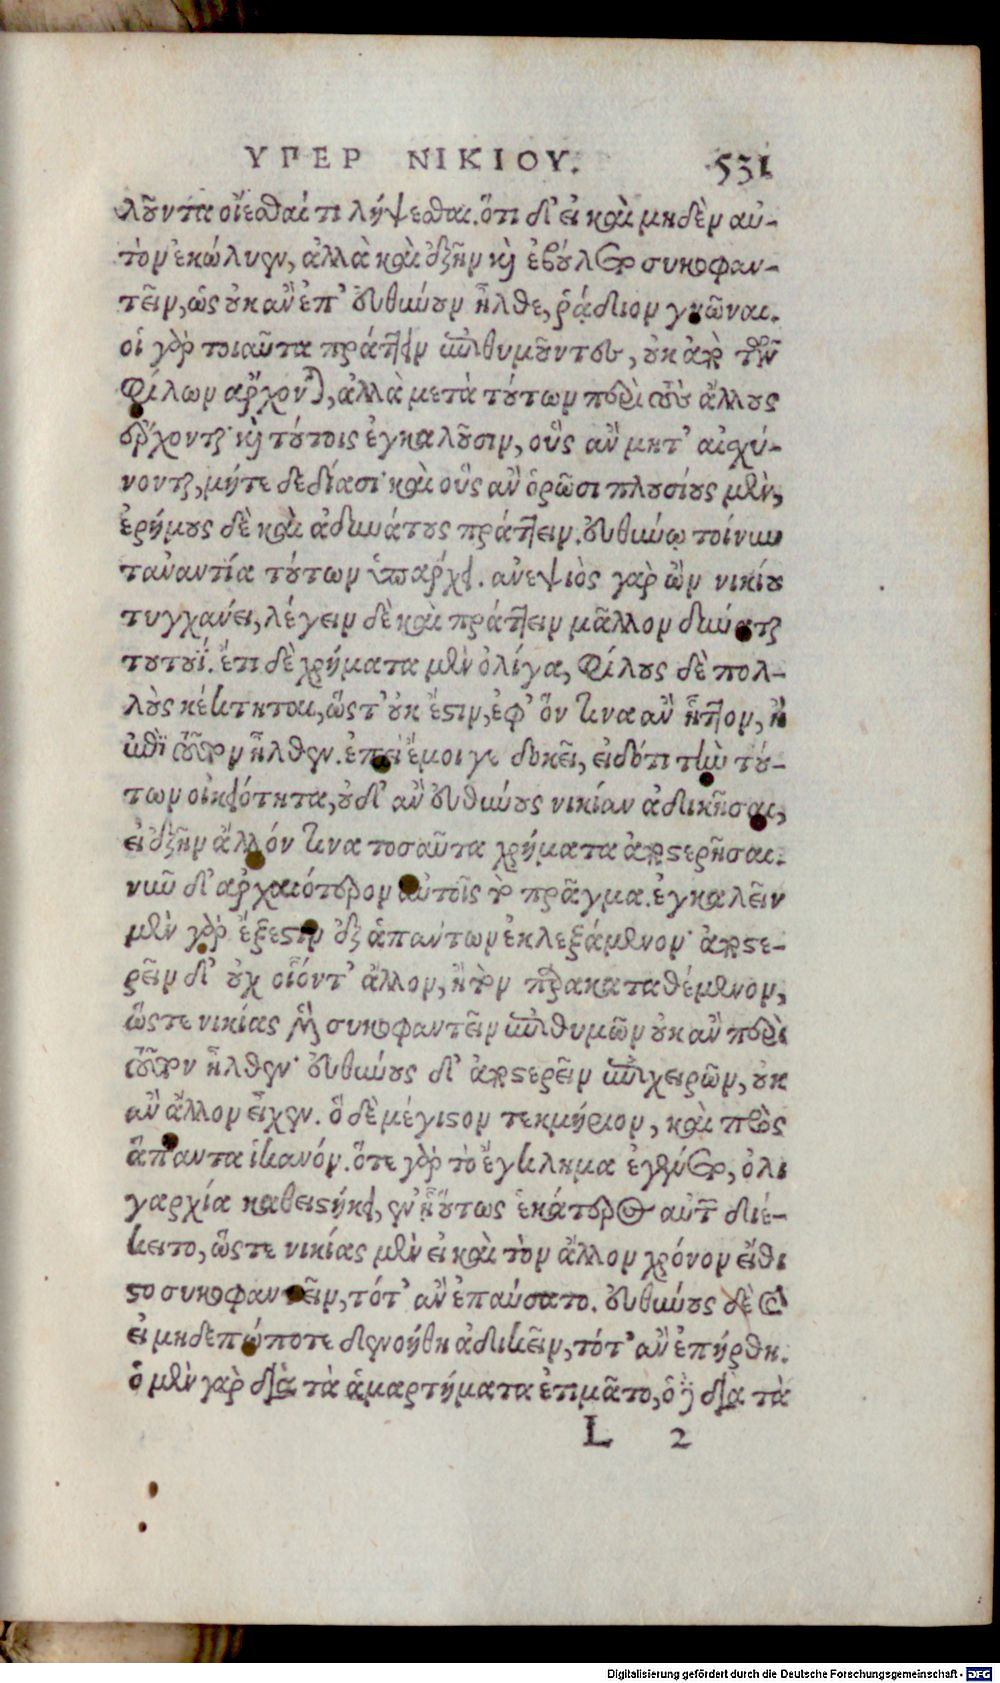 ΥΠΕΡ ΝΙΚΙΟΥ. 531
λοῦντα οἴεσθαί τι λήψεσθαι. ὅτι δ' εἰ καὶ μηδὲν αὐ-
τὸν ἐκώλυεν, ἀλλὰ καὶ ἐξῆν καὶ ἐβούλετο συκοφαν-
τεῖν, ὡς οὐκ ἂν ἐπ' Εὐθύνουν ἦλθε, ῥᾴδιον γνῶναι.
οἱ γὰρ τοιαῦτα πράττειν ἐπιθυμοῦντες, οὐκ ἀπὸ τῶν
φίλων ἄρχονται, ἀλλὰ μετὰ τούτων περὶ τοὺς ἄλλους
ἔρχονται· καὶ τούτοις ἐγκαλοῦσιν, οὓς ἂν μήτ' αἰσχύ-
νονται, μήτε δεδίασι· καὶ οὓς ἂν ὁρῶσι πλουσίους μὲν,
ἐρήμους δὲ καὶ ἀδυνάτους πράττειν. Εὐθύνῳ τοίνυν
τἀναντία τούτων ὑπάρχει. ἀνεψιὸς γὰρ ὢν νικίου
τυγχάνει, λέγειν δὲ καὶ πράττειν μᾶλλον δύναται
τουτουΐ. ἔτι δὲ χρήματα μὲν ὀλίγα, φίλους δὲ πολ-
λοὺς κέκτηται, ὥστ' οὐκ ἔστιν, ἐφ' ὅν τινα ἂν ἧττον, ἢ
ἐπὶ τοῦτον ἦλθεν. ἐπεὶ ἔμοιγε δοκεῖ, εἰδότι τὴν τού-
των οἰκειότητα, οὐδ' ἂν Εὐθύνους νικίαν ἀδικῆσαι,
εἰ ἐξῆν ἄλλόν τινα τοσαῦτα χρήματα ἀποστερῆσαι.
νῦν δ' ἀρχαιότερον αὐτοῖς τὸ πρᾶγμα. ἐγκαλεῖν
μὲν γὰρ ἔξεστιν ἐξ ἁπάντων ἐκλεξάμενον· ἀποστε-
ρεῖν δ' οὐχ οἷόντ' ἄλλον, ἢ τὸν παρακαταθέμενον,
ὥστε νικίας μὲν συκοφαντεῖν ἐπιθυμῶν οὐκ ἂν περὶ
τοῦτον ἦλθεν· Εὐθύνους δ' ἀποστερεῖν ἐπιχειρῶν, οὐκ
ἂν ἄλλον εἶχεν. ὃ δὲ μέγιστον τεκμήριον, καὶ πρὸς
ἅπαντα ἱκανόν. ὅτε γὰρ τὸ ἔγκλημα ἐγένετο, ὀλι
γαρχία καθειστήκει, ἐν ᾗ οὕτως ἑκάτερος αὐτῶν διέ-
κειτο, ὥστε νικίας μὲν εἰ καὶ τὸν ἄλλον χρόνον εἴθι
στο συκοφαντεῖν, τότ' ἂν ἐπαύσατο. Εὐθύνους δὲ καὶ
εἰ μηδεπώποτε διενοήθη ἀδικεῖν, τότ' ἂν ἐπήρθη.
ὁ μὲν γὰρ διὰ τὰ ἁμαρτήματα ἐτιμᾶτο, ὁ δὲ διὰ τὰ
L 2
Digitalisierung gefördert durch die Deutsche Forschungsgemeinschaft - DFG